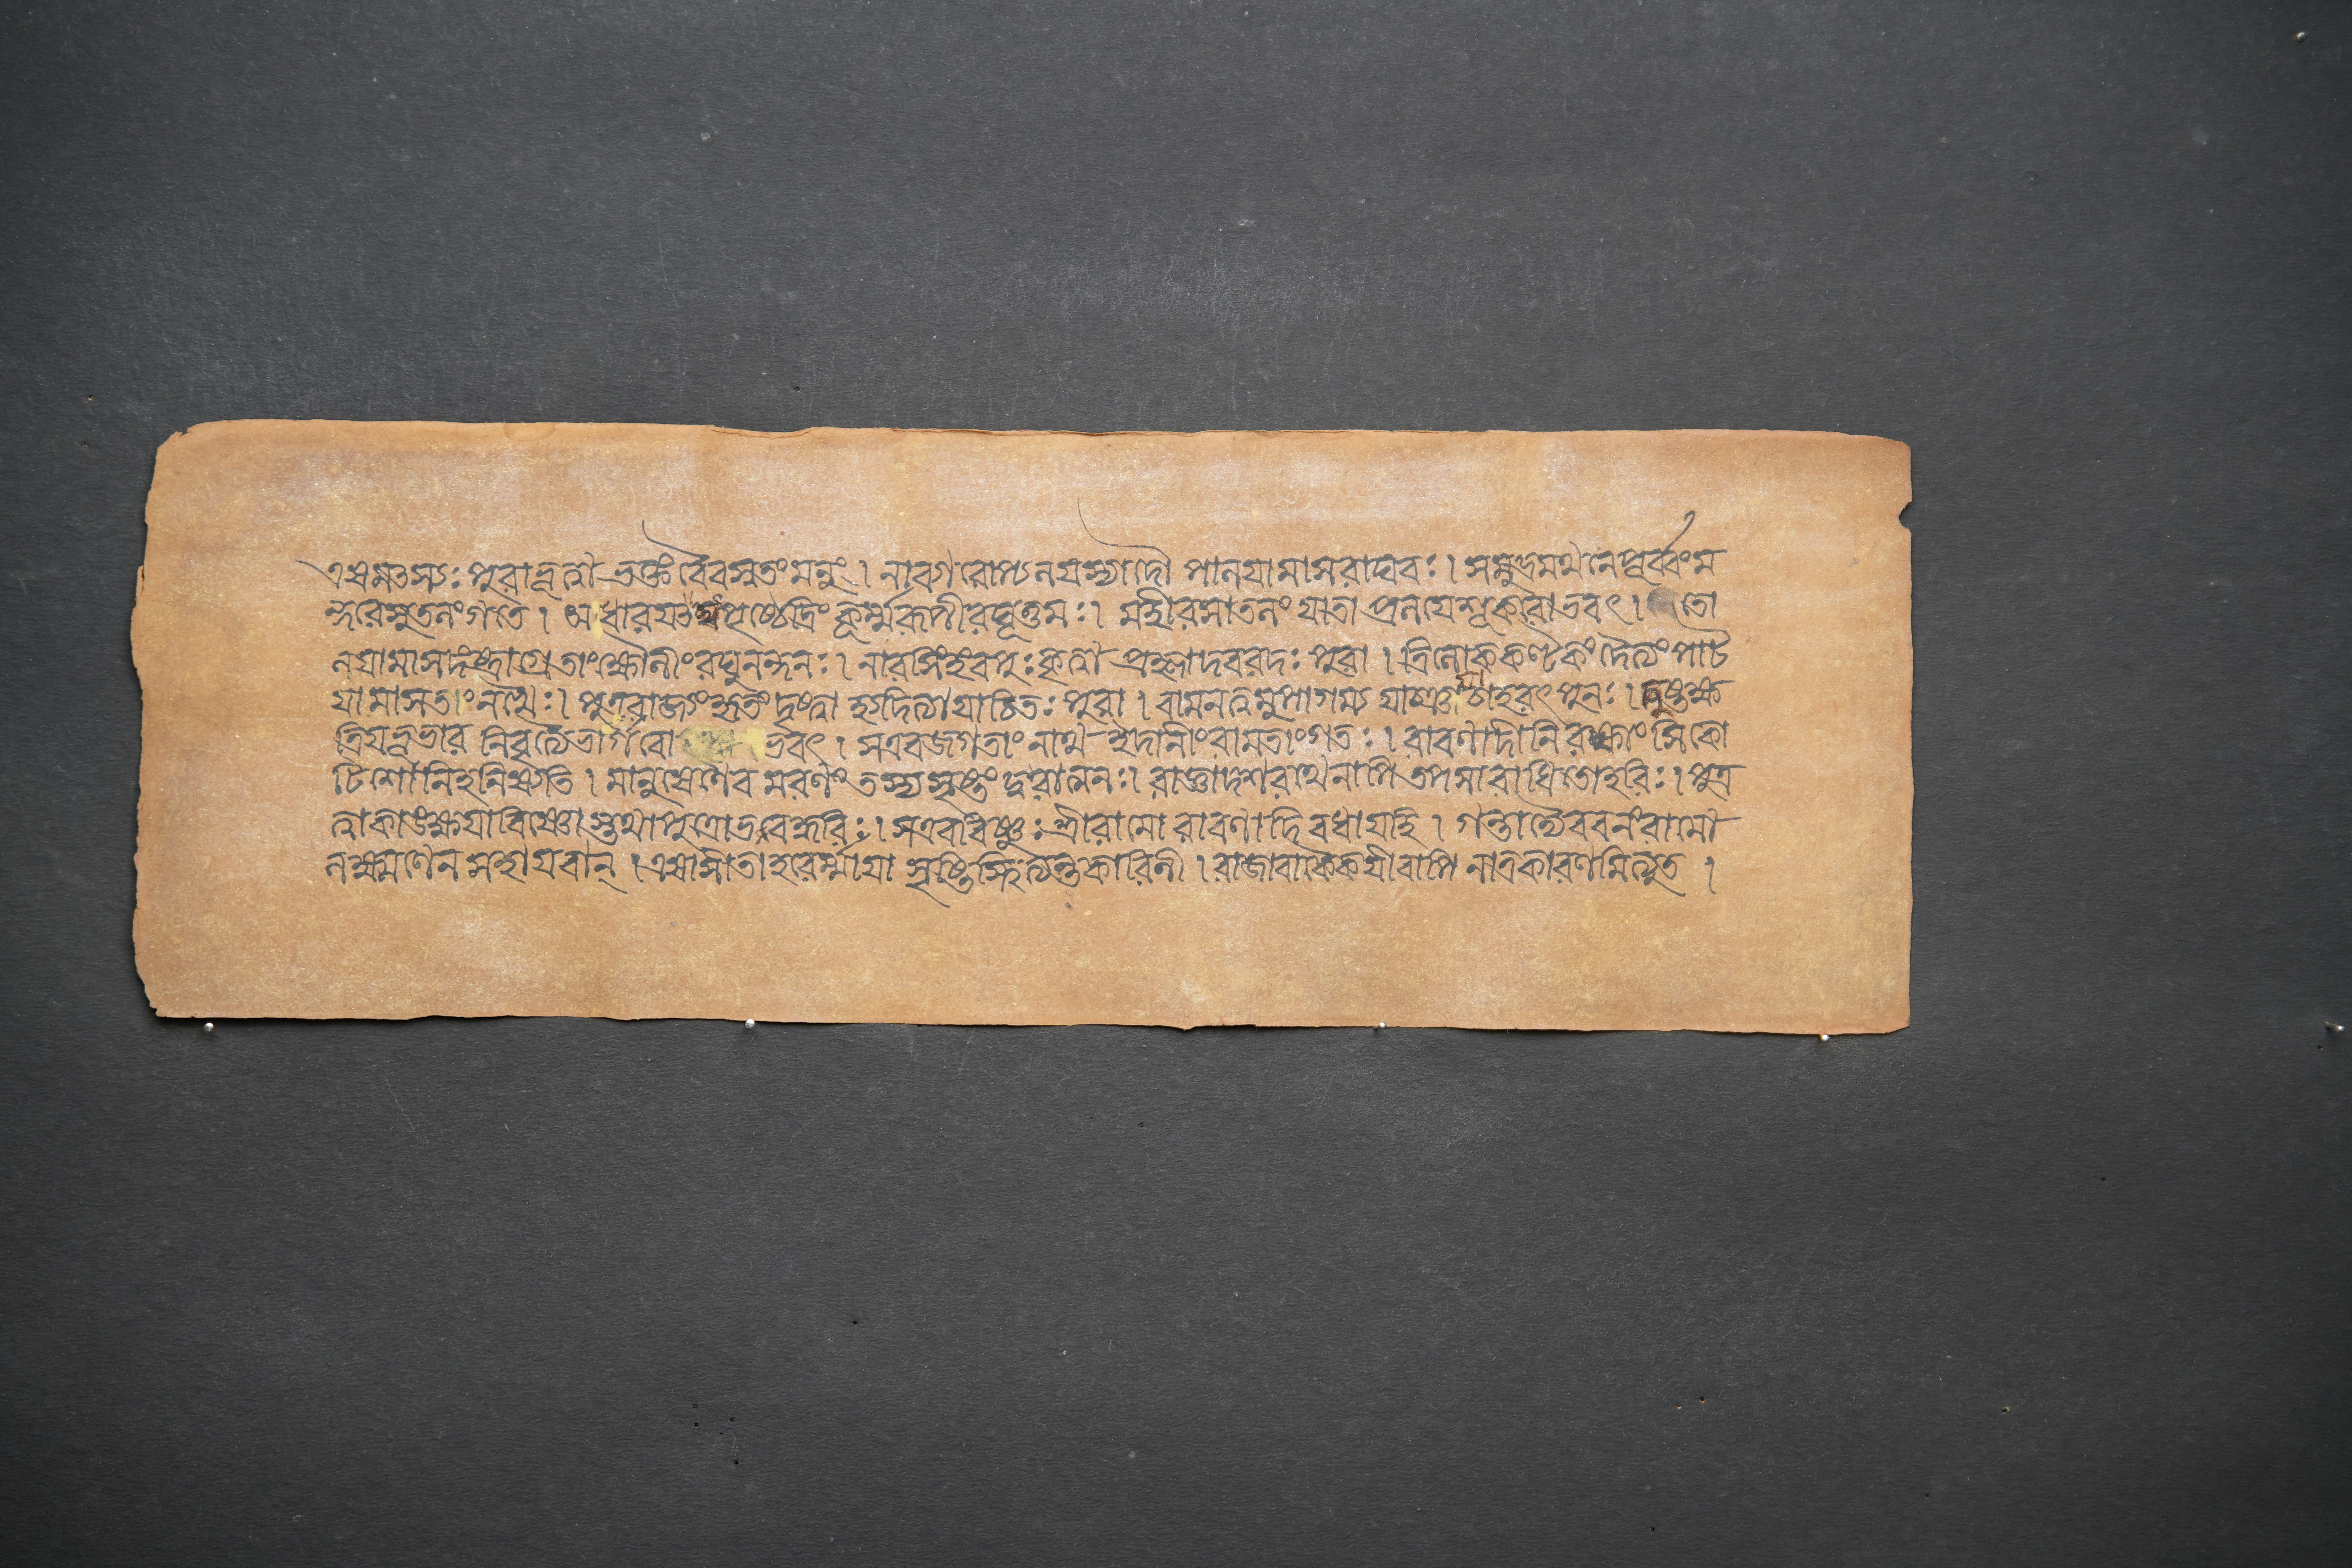 এষমৎস্যঃপুরাভূত্বা ভক্তংবৈবস্বতংমনুং। নাবর্গরোপ্যলয়স্যাদৌ পালয়ামাসরাঘবঃ। সমুদ্রমথনেপূর্ব্বংম
ন্দরেসুতলংগতে। অধারয়ৎস্বপৃষ্ঠেদ্রিং কূর্ম্মরূপীরঘূত্তমঃ। মহীরসাতলংযাতা প্রলয়েশূকরোভবৎ। তো
লয়ামাসদংষ্ট্রাগ্রেতাংক্ষৌনীংরঘুনন্দনঃ। নারসিংহংবপুঃকৃত্বা প্রহ্লাদবরদঃপুরা। ত্রিলোককণ্টকংদৈত্যংপাট
য়ামাসতাংনখৈঃ। পুত্ররাজ্যংহৃতংদৃষ্ট্বা হ্যদিত্যাযাচিতঃপুরা। বামনত্বমুপাগম্য যাঞ্চয়াচাহরৎপুনঃ। দুষ্টক্ষ
ত্রিয়ভূভার নিবৃত্যৈভার্গবো ভবৎ। সএবজগতাংনাথ ইদানীংরামতাংগতঃ। রাবণাদীনিরক্ষাংসিকো
টিশোনিহনিষ্যতি। মানুষেণৈব মরণং তস্যসৃষ্টংদুরাত্মনঃ। রাজ্ঞাদশরথেনাপি তপসারাধিতোহরিঃ। পুত্র
ত্বাকাঙক্ষয়াবিষ্ণোস্তথাপুত্রোভবেদ্ধরিঃ। সএববিষ্ণুঃশ্রীরামো রাবণাদিবধায়হি। গন্তাদ্যৈববনংরামো
লক্ষ্মণেন সহায়বান্।এষাসীতাহরের্ম্মায়া সৃষ্টিস্থিত্যন্তকারিনী। রাজাবাকৈকয়ীবাপি নাত্রকারণমিত্যুত।